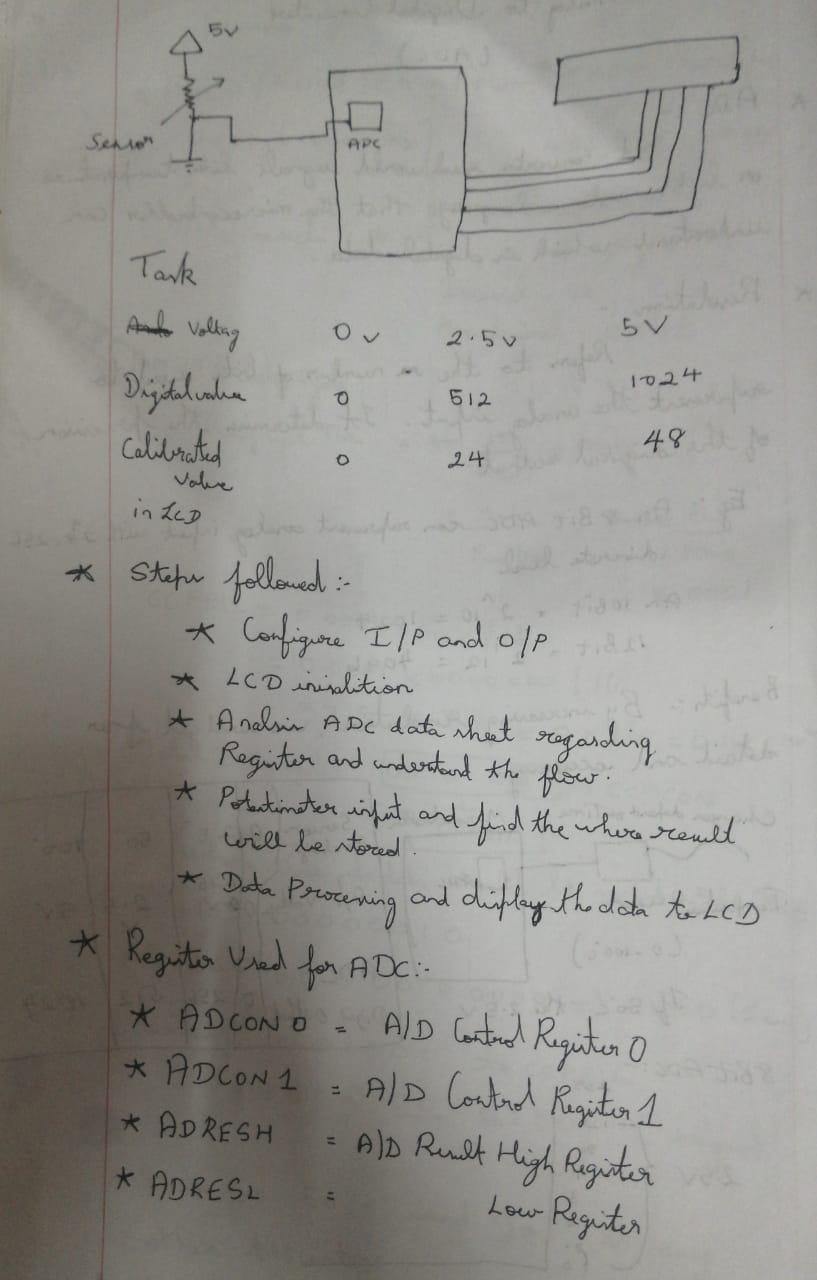 5V
Sensor
ADC
Task
Voltag 0v 2.5v 5V
Digital value 0 512 1024
Calibrated 0 24 48
Value
in LCD
* Steps followed :-
* Configure I/P and O/P
* LCD
* Analsis ADC data sheet regarding
Register and understand the flow.
* Potentimeter input and find the where result
will be stored.
* Data Processing and display the data to LCD
* Register Used for ADC:-
* ADCON0 = A/D Control Register 0
* ADCON1 = A/D Control Register 1
* ADRESH = A/D Result High Register
* ADRESL = Low Register